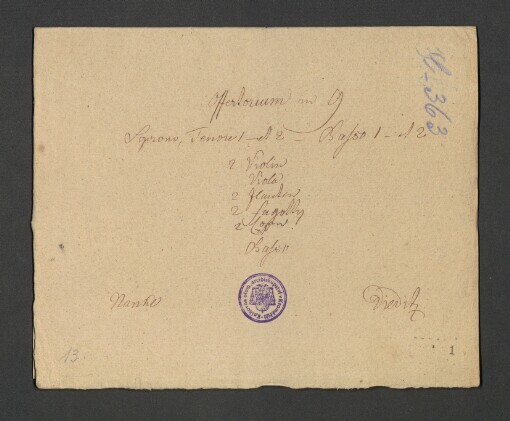 Offertorium in G
Soprano, Tenore 1 et 2 – Basso 1 et 2
2 Violin
Viola
2 Flauten
2 Fagotty
2 Corni
Basso
Nanke
13
1